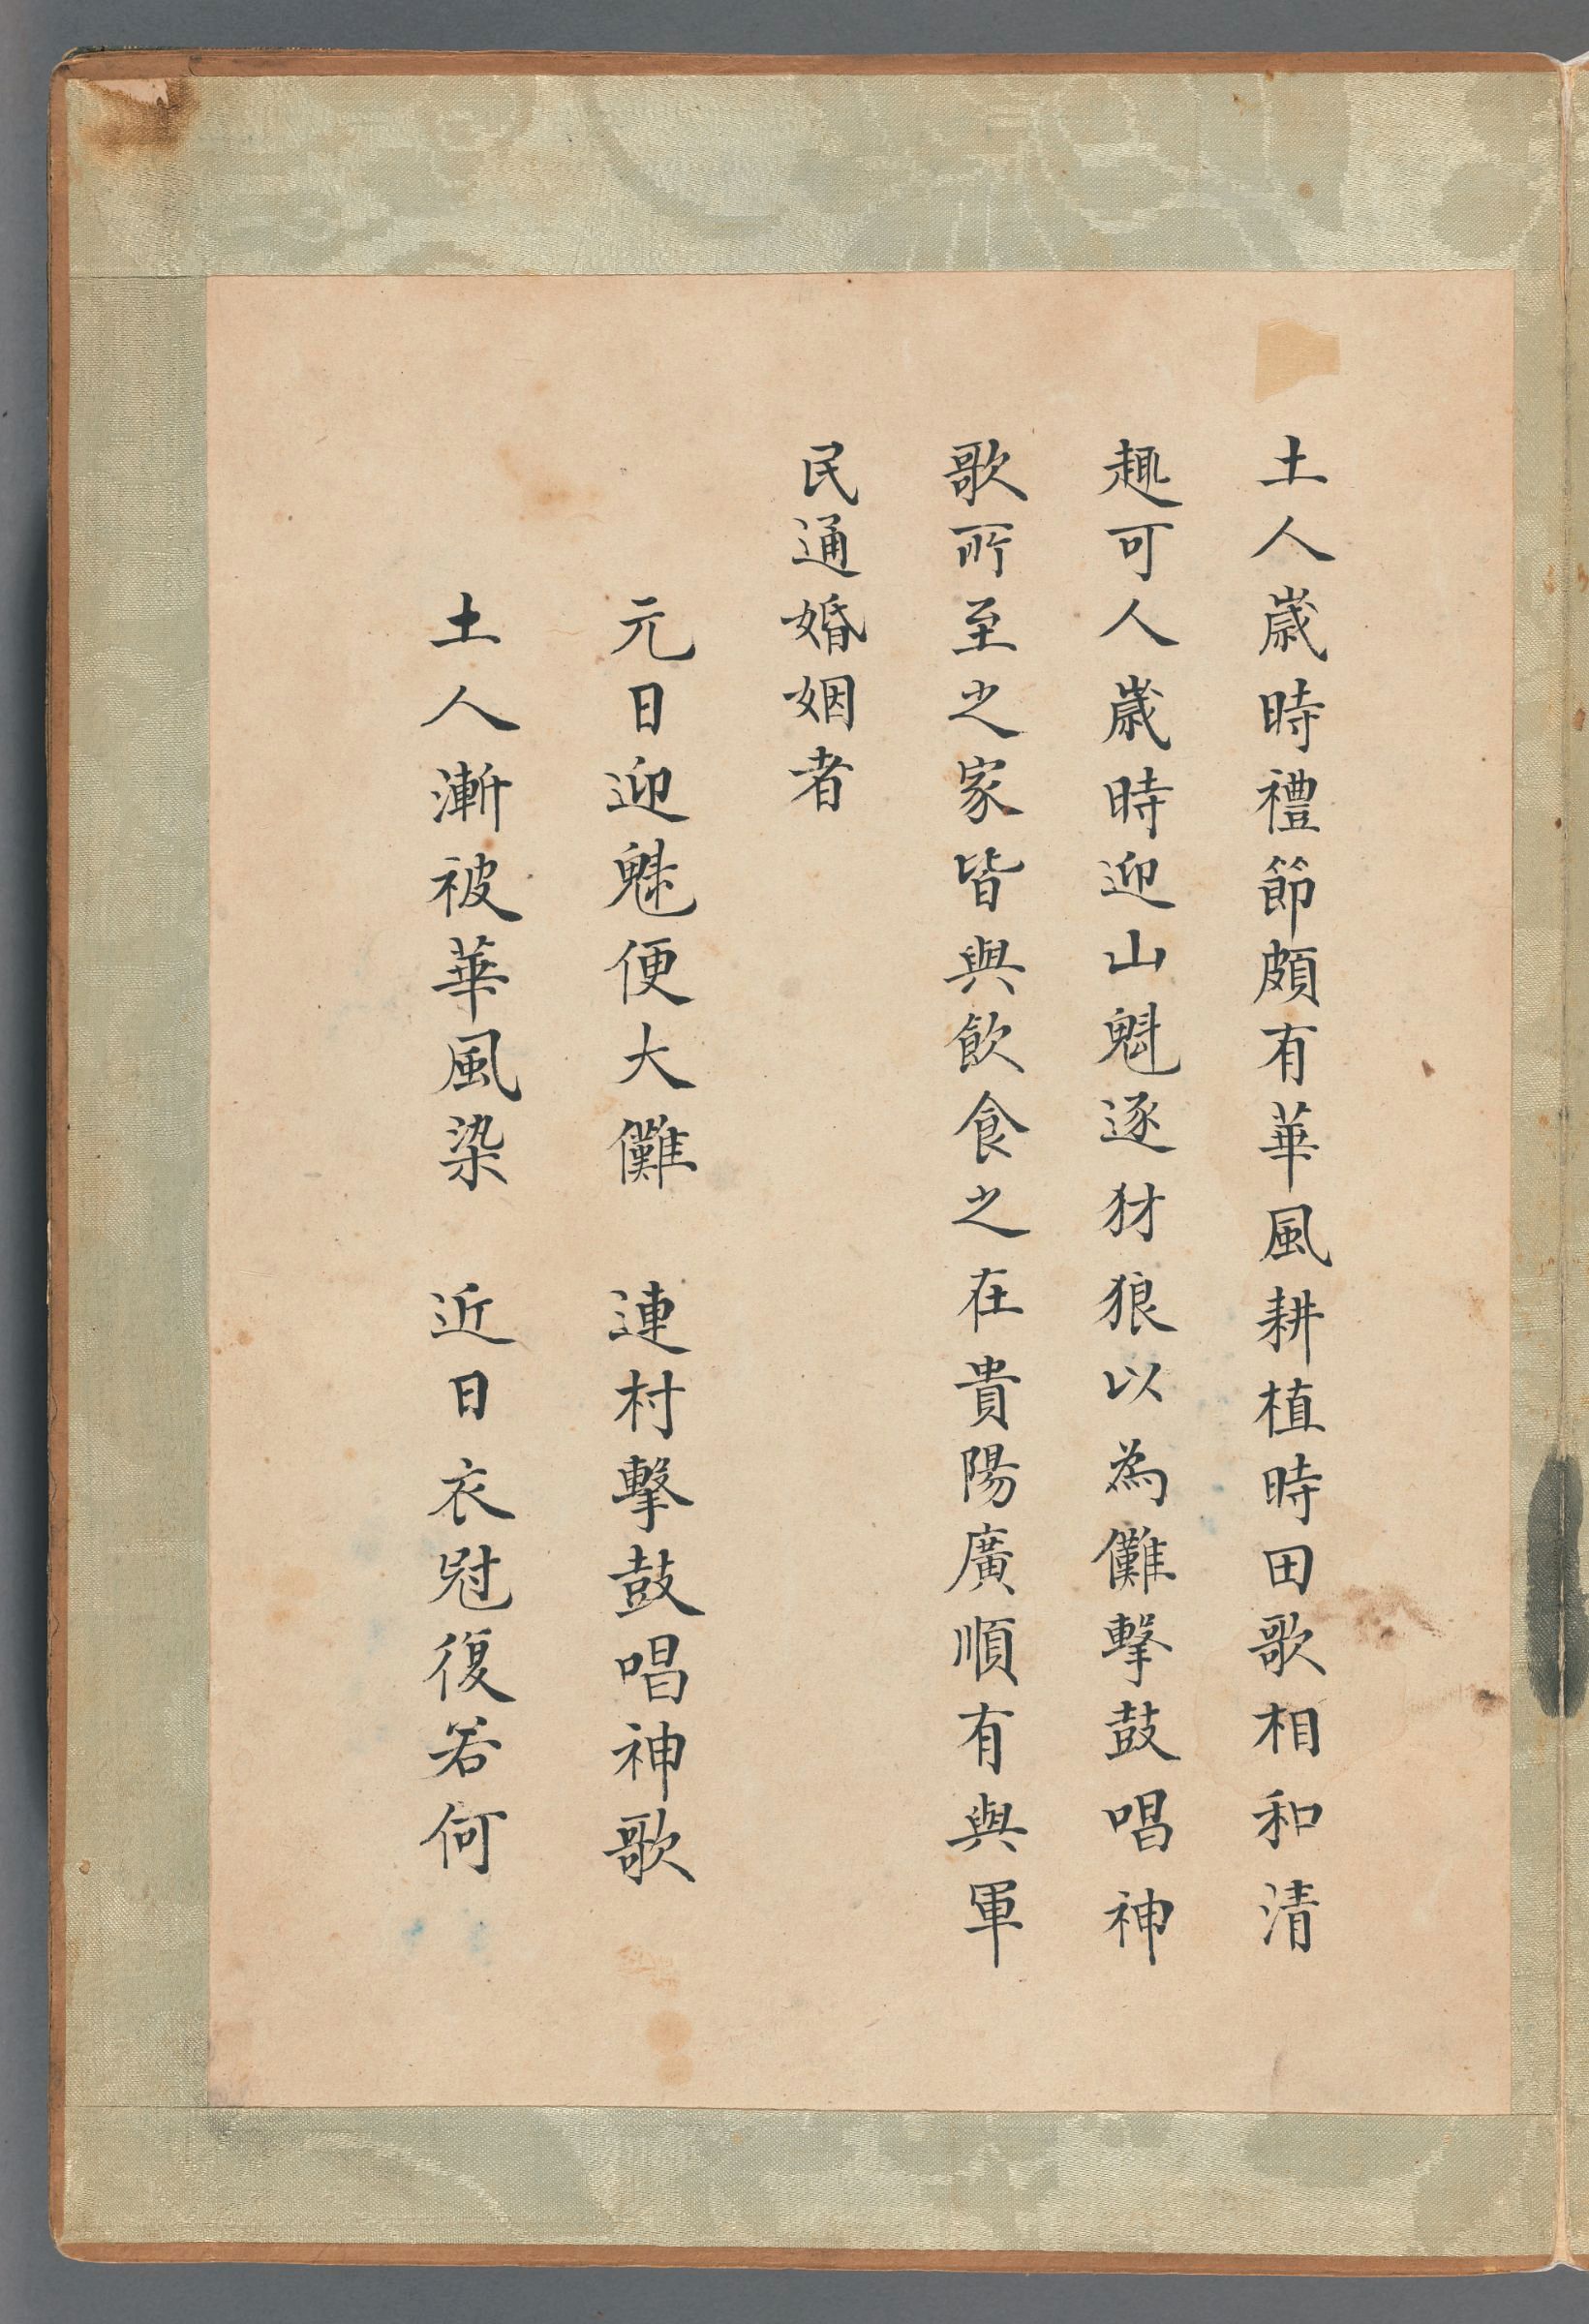 土人歲時禮節頗有華風耕植時田歌相和清
趣可人歲時迎山魈逐犲狼以為儺擊鼓唱神
歌所至之家皆與飲食之在貴陽廣順有與軍
民通婚姻者
元日迎魅便大儺 連村擊鼓唱神歌
土人漸被華風染 近日衣冠復若何